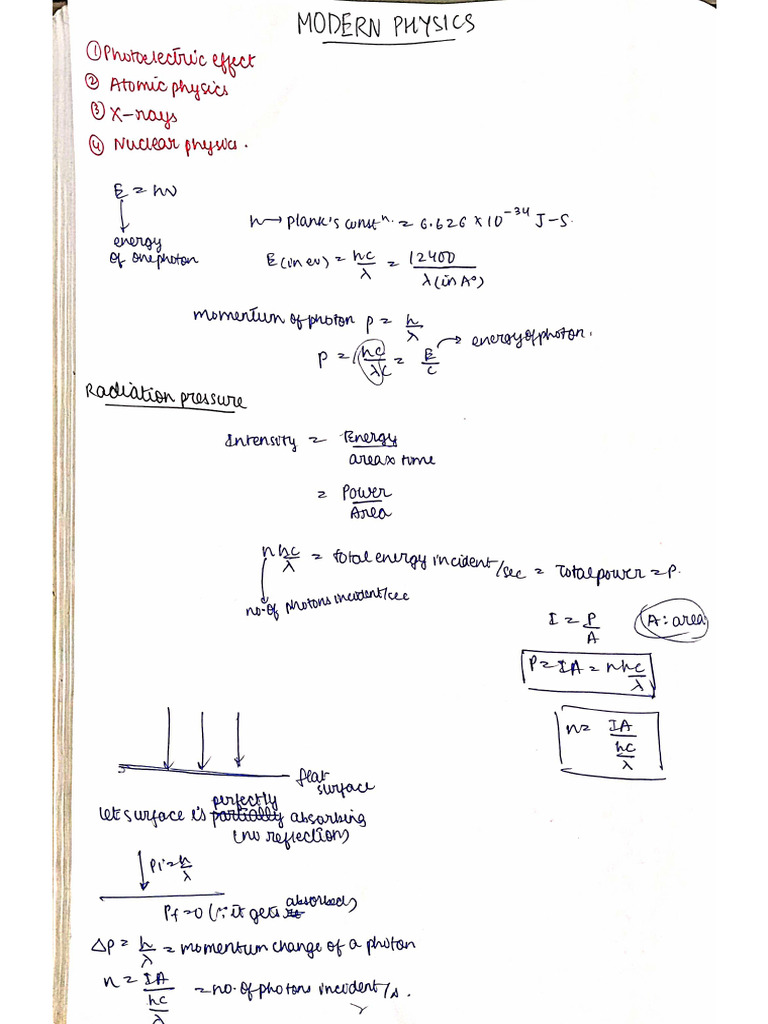 MODERN PHYSICS
① Photoelectric effect
② Atomic physics
③ X-rays
④ Nuclear physics.
E = hν
energy
of one photon
h → Plank's constⁿ. = 6.626 × 10⁻³⁴ J-S.
E (in ev) = hc/λ = 12400/λ(in A°)
momentum of photon p = h/λ
p = hc/λc = E/c → energy of photon.
Radiation pressure
Intensity = Energy/area × time
= Power/Area
nhc/λ = total energy incident/sec = Total power = P.
no. of photons incident/sec
I = P/A (A: area)
P = IA = nhc/λ
n = IA/(hc/λ)
flat surface
let surface is partially perfectly absorbing
(no reflection)
Pi = h/λ
Pf = 0 (∵ it gets absorbed)
Δp = h/λ = momentum change of a photon
n = IA/(hc/λ) = no. of photons incident/s.